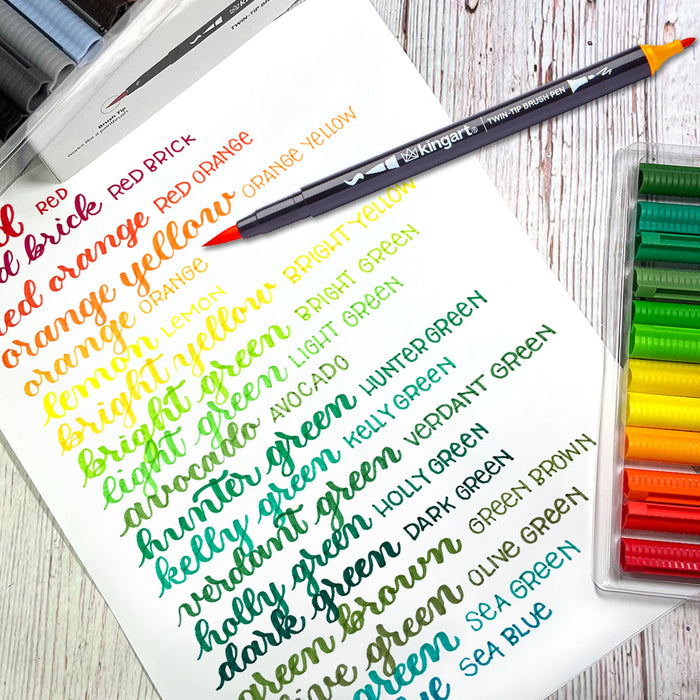 Brush Tip
works like a paintbrush
kingart® | TWIN-TIP BRUSH PEN
RED
d brick RED BRICK
red orange RED ORANGE
orange yellow ORANGE YELLOW
orange ORANGE
lemon LEMON
bright yellow BRIGHT YELLOW
bright green BRIGHT GREEN
light green LIGHT GREEN
avocado AVOCADO
hunter green HUNTER GREEN
kelly green KELLY GREEN
verdant green VERDANT GREEN
holly green HOLLY GREEN
dark green DARK GREEN
green brown GREEN BROWN
olive green OLIVE GREEN
green SEA GREEN
SEA BLUE